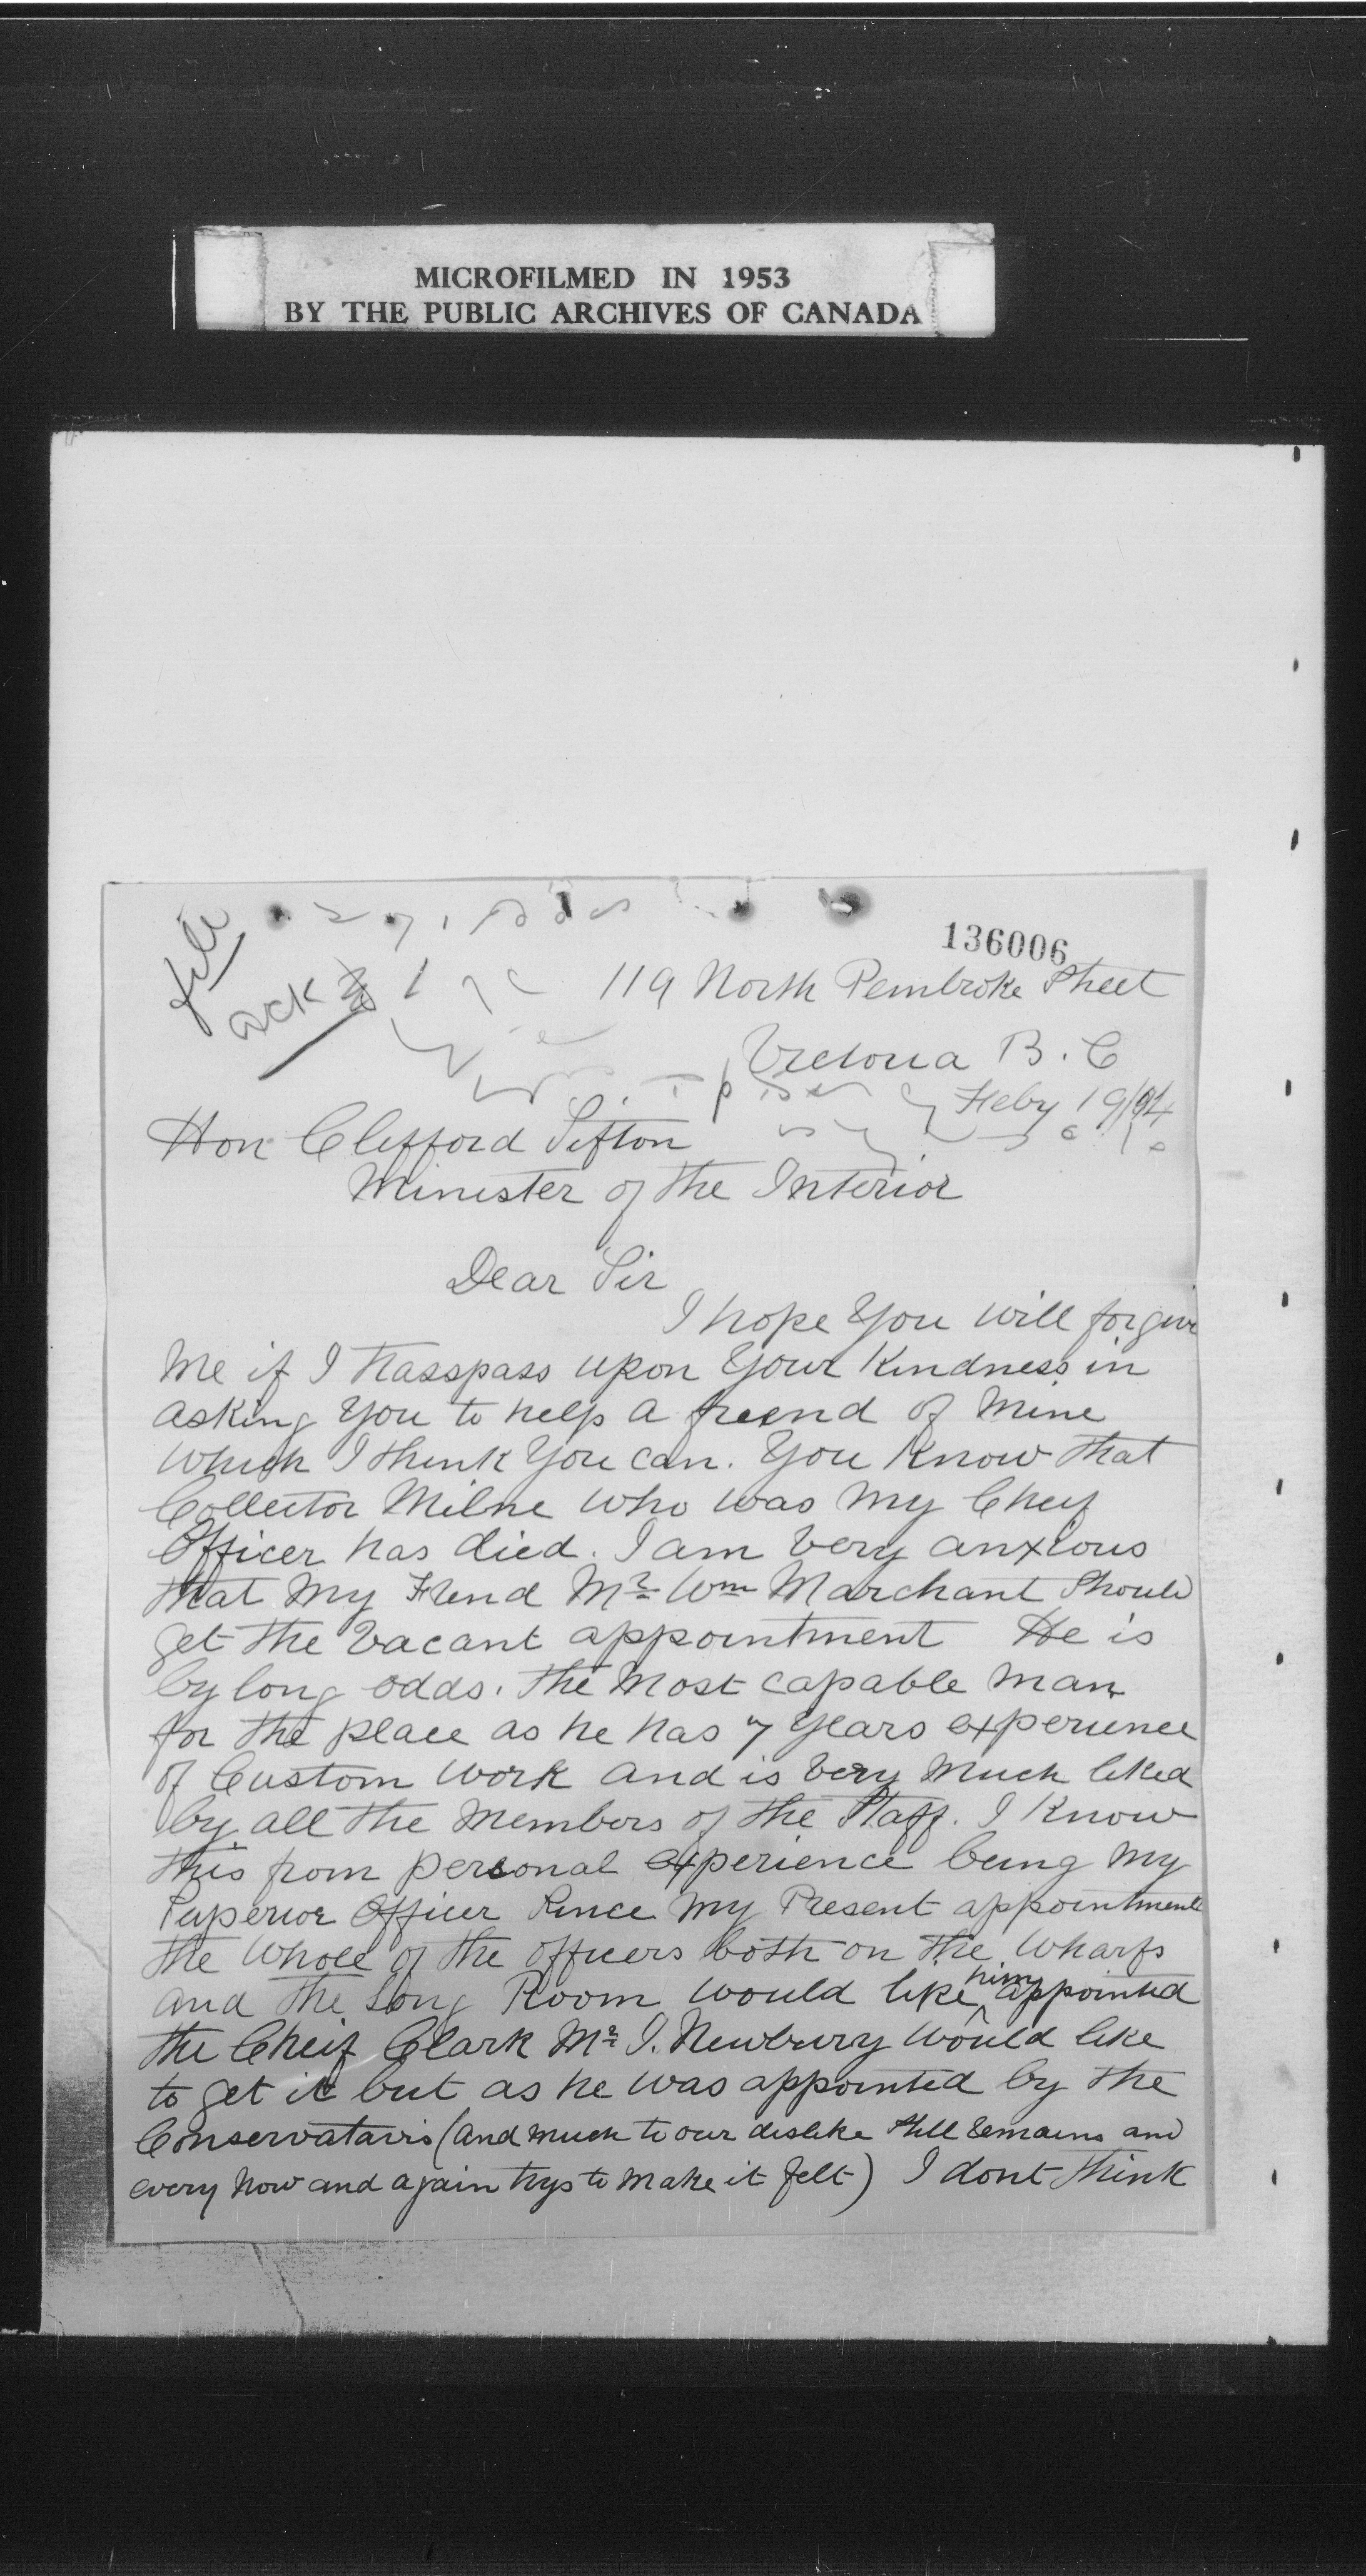 MICROFILMED IN 1953
BY THE PUBLIC ARCHIVES OF CANADA
136006
file
ack
119 North Pembroke Street
Victoria B.C
Feby 19/04
Hon Clifford Sifton
Minister of the Interior
Dear Sir
I hope You will forgive
Me if I trasspass upon Your Kindness in
asking You to help a freend of Mine
which I think You can. You Know that
Collector Milne who was My Cheif
Officer has died. I am Very anxious
that My Frend Mr Wm Marchant Should
get the Vacant appointment He is
by long odds. the Most capable Man
for the place as he has 7 Years experience
of Custom Work and is Very Much liked
by all the Members of the Staff. I Know
this from personal experience being My
Superior Officer Since My Present appointment
the Whole of the officers both on the Wharfs
and the Long Room Would like him appointed
the Cheif Clark Mr I. Newbury Would like
to get it but as he was appointed by the
Conservatavis (and Much to our dislike Still Remains and
every Now and again trys to Make it felt) I dont think